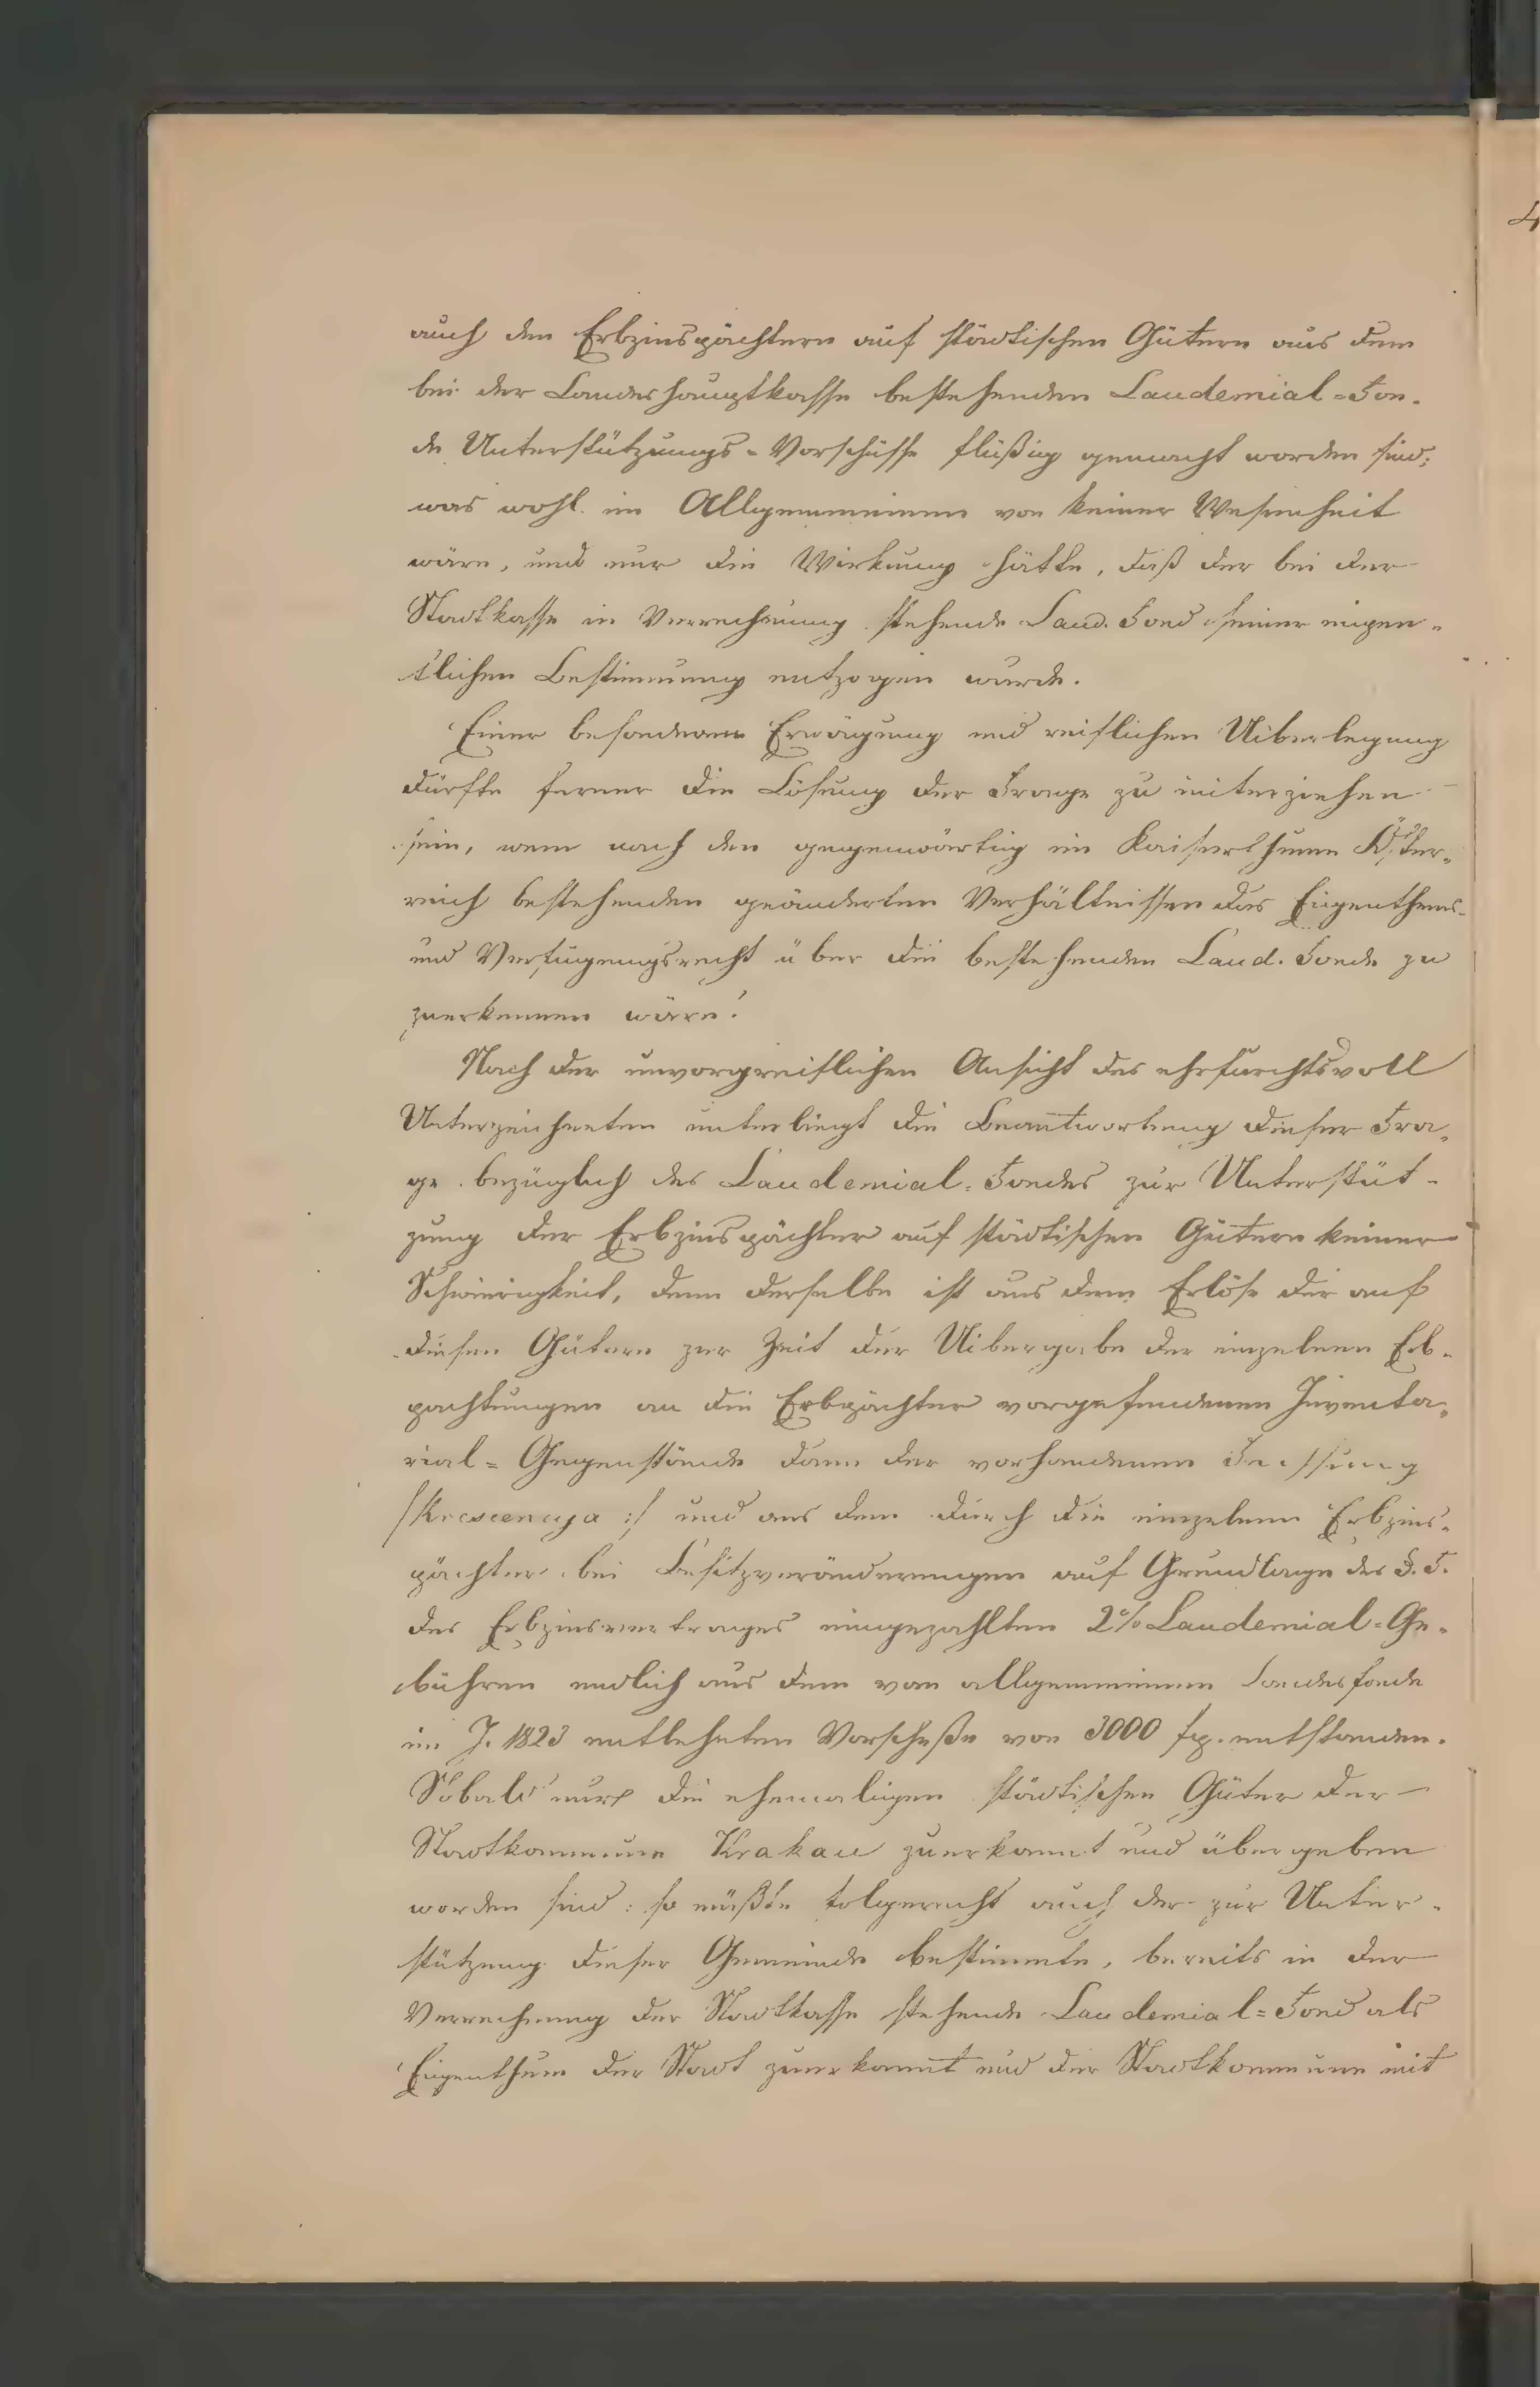 auch den Erbzinspächtern auf städtischen Gütern aus dem
bei der Landeshauptkasse bestehenden Laudemial=Fon-
de Unterstützungs=Vorschüsse flüßig gemacht worden sind;
was wohl im Allgemeinen von keiner Wesenheit
wäre, und nur die Wirkung hätte, daß der bei der
Stadtkasse in Verrechnung stehende Laud. Fond seiner eigen-
tlichen Bestimmung entzogen wurde.
Einer besonderen Erwägung und reiflichen Uiberlegung
dürfte ferner die Lösung der Frage zu unterziehen
sein, wem nach den gegenwärtig im Kaiserthume Öster-
reich bestehenden geänderten Verhältnissen das Eigenthums-
und Verfügungsrecht über die bestehenden Laud. Fonde zu
zuerkennen wäre?
Nach der unvorgreiflichen Ansicht des ehrfurchtsvoll
Unterzeichneten unterliegt die Beantwortung dieser Fra-
ge bezüglich des Laudemial=Fondes zur Unterstüt-
zung der Erbzinspächter auf städtischen Gütern keiner
Schwierigkeit, denn derselbe ist aus dem Erlöse der auf
diesen Gütern zur Zeit der Uibergabe der einzelnen Erb-
pachtungen an die Erbpächter vorgefundenen Inventa-
rial=Gegenstände dann der vorhandenen Fechsung
/Krescencya :/ und aus dem durch die einzelnen Erbzins-
pächter bei Besitzveränderungen auf Grundlage des §. 5.
des Erbzinsvertrages eingezahlten 2% Laudemial=Ge-
bühren endlich aus dem vom allgemeinen Landesfonde
im J. 1823 entlehnten Vorschuße von 3000 fp. entstanden.
Sobald nun die ehemaligen städtischen Güter der
Stadtkommune Krakau zuerkannt und übergeben
worden sind: so müßte folgerecht auch der zur Unter-
stützung dieser Gemeinde bestimmte, bereits in der
Verrechnung der Stadtkasse stehende Laudemial=Fond als
Eigenthum der Stadt zuerkannt und der Stadtkommune mit